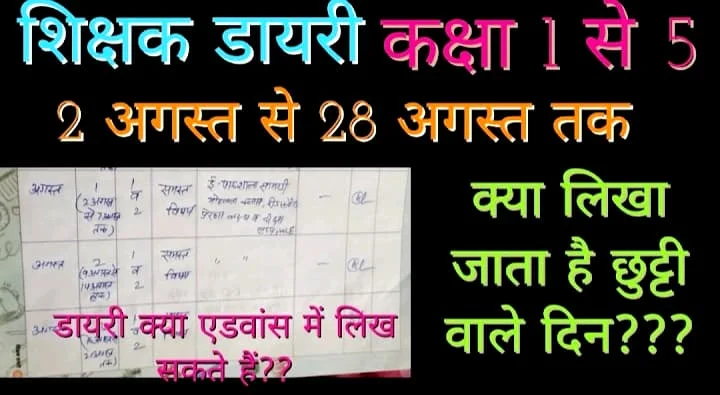 शिक्षक डायरी कक्षा 1 से 5
2 अगस्त से 28 अगस्त तक
क्या लिखा
जाता है छुट्टी
वाले दिन???
अगस्त 1 1 समस्त ई-पाठशाला सामग्री
(2 अगस्त व विषय
से 7 अगस्त 2
तक)
अगस्त 2 1 समस्त " "
(9 अगस्त से व विषय
14 अगस्त 2
तक)
डायरी क्या एडवांस में लिख
सकते हैं??